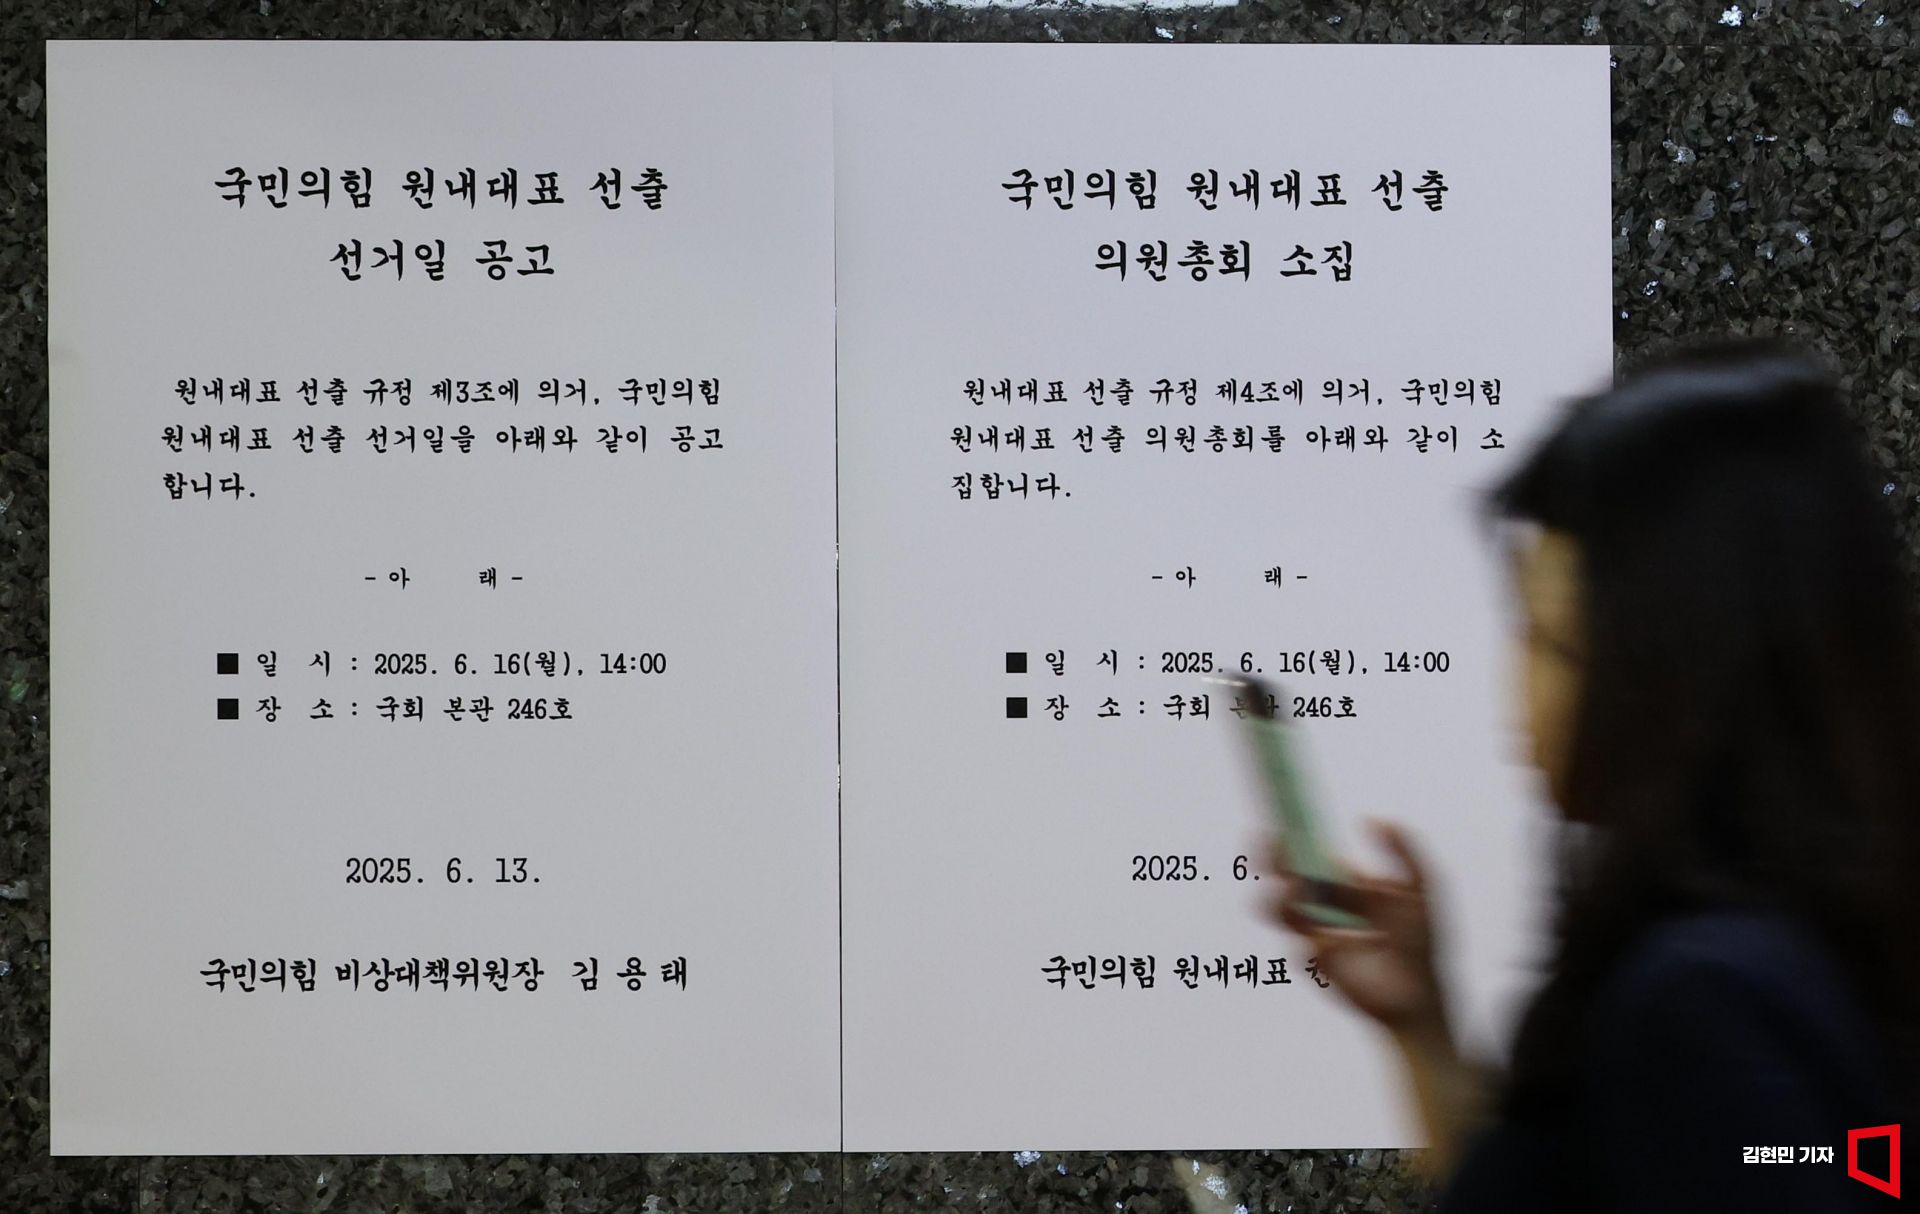 국민의힘 원내대표 선출
선거일 공고
원내대표 선출 규정 제3조에 의거, 국민의힘
원내대표 선출 선거일을 아래와 같이 공고
합니다.
- 아 래 -
■ 일 시 : 2025. 6. 16(월), 14:00
■ 장 소 : 국회 본관 246호
2025. 6. 13.
국민의힘 비상대책위원장 김 용 태
국민의힘 원내대표 선출
의원총회 소집
원내대표 선출 규정 제4조에 의거, 국민의힘
원내대표 선출 의원총회를 아래와 같이 소
집합니다.
- 아 래 -
■ 일 시 : 2025. 6. 16(월), 14:00
■ 장 소 : 국회 본관 246호
2025. 6.
국민의힘 원내대표 권
김현민 기자